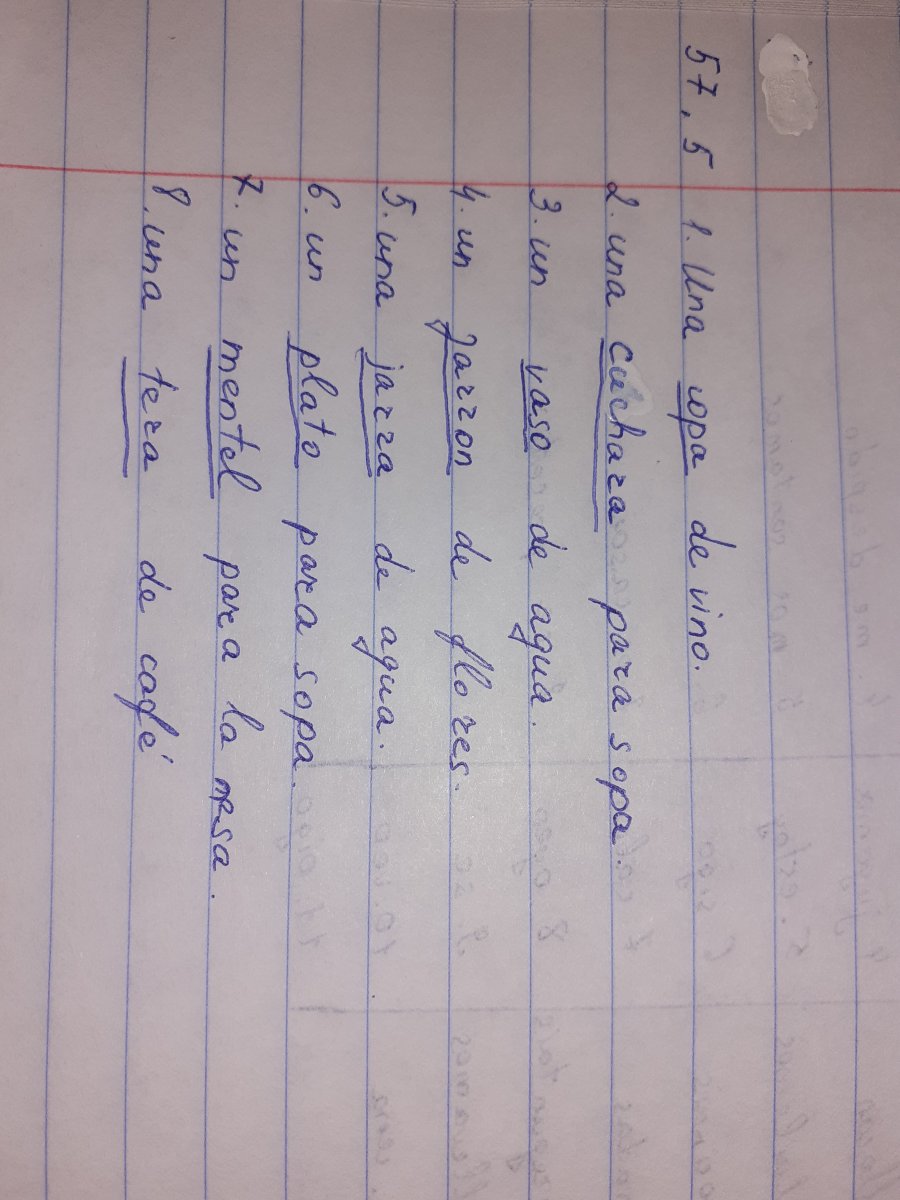 57, 5 1. Una copa de vino.
2. una cuchara para sopa.
3. un vaso de agua.
4. un jarron de flores.
5. una jarra de agua.
6. un plato para sopa.
7. un mentel para la mesa.
8. una teza de café